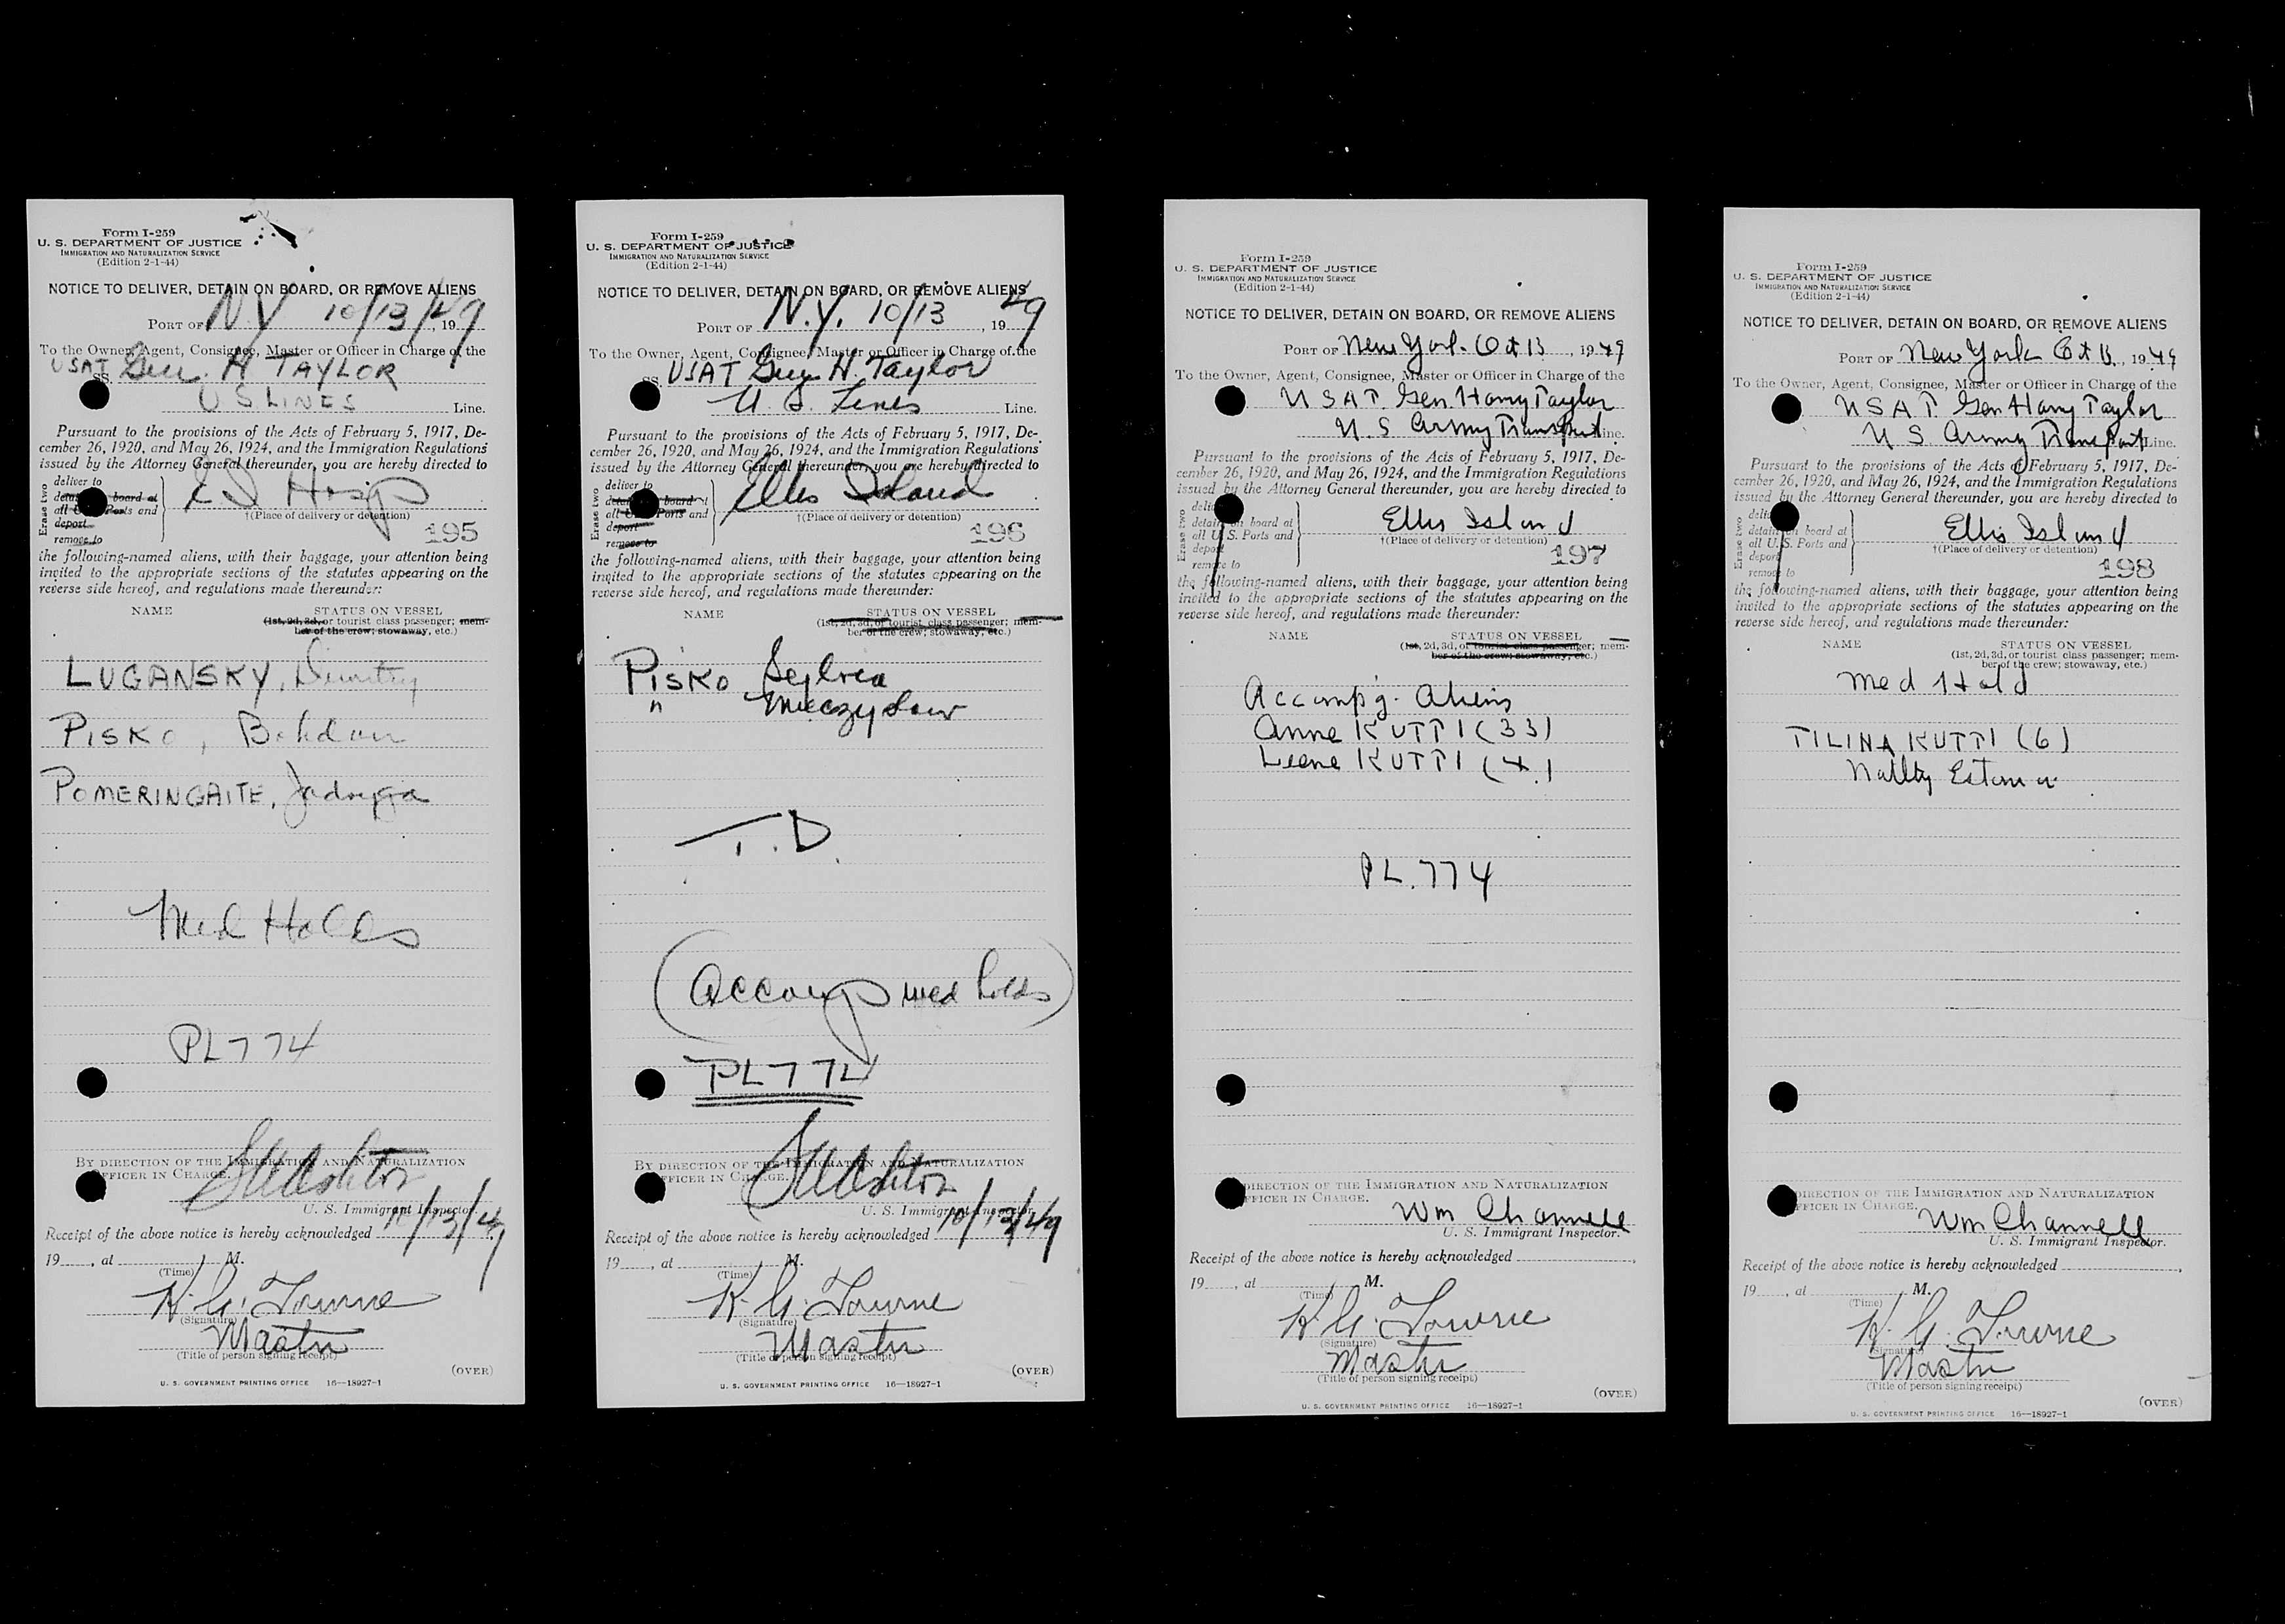 Form I-259
U. S. DEPARTMENT OF JUSTICE
IMMIGRATION AND NATURALIZATION SERVICE
(Edition 2-1-44)
NOTICE TO DELIVER, DETAIN ON BOARD, OR REMOVE ALIENS
PORT OF N.Y 10/13/49, 19
To the Owner, Agent, Consignee, Master or Officer in Charge of the
USAT SS. Gen. H TAYLOR
U S. LINES Line.
Pursuant to the provisions of the Acts of February 5, 1917, De-
cember 26, 1920, and May 26, 1924, and the Immigration Regulations
issued by the Attorney General thereunder, you are hereby directed to
Erase two
deliver to
board at
all Ports and
deport
remove to
E I Hosp
†(Place of delivery or detention)
195
the following-named aliens, with their baggage, your attention being
invited to the appropriate sections of the statutes appearing on the
reverse side hereof, and regulations made thereunder:
NAME STATUS ON VESSEL
(1st, 2d, 3d, or tourist class passenger; mem-
ber of the crew; stowaway, etc.)
LUGANSKY, Dimitry
PISKO, Bohdan
POMERINGAITE, Jadvyga
Med Holds
PL 774
BY DIRECTION OF THE IMMIGRATION AND NATURALIZATION
OFFICER IN CHARGE.
U. S. Immigrant Inspector.
Receipt of the above notice is hereby acknowledged 10/13/49
19, at M.
(Time)
K. G. Towne
(Signature)
Master
(Title of person signing receipt)
(OVER)
U. S. GOVERNMENT PRINTING OFFICE 16—18927-1
Form I-259
U. S. DEPARTMENT OF JUSTICE
IMMIGRATION AND NATURALIZATION SERVICE
(Edition 2-1-44)
NOTICE TO DELIVER, DETAIN ON BOARD, OR REMOVE ALIENS
PORT OF N.Y. 10/13, 1949
To the Owner, Agent, Consignee, Master or Officer in Charge of the
SS. USAT Gen H. Taylor
U. S. Lines Line.
Pursuant to the provisions of the Acts of February 5, 1917, De-
cember 26, 1920, and May 26, 1924, and the Immigration Regulations
issued by the Attorney General thereunder, you are hereby directed to
Erase two
deliver to
board at
all Ports and
deport
remove to
Ellis Island
†(Place of delivery or detention)
196
the following-named aliens, with their baggage, your attention being
invited to the appropriate sections of the statutes appearing on the
reverse side hereof, and regulations made thereunder:
NAME STATUS ON VESSEL
(1st, 2d, 3d, or tourist class passenger; mem-
ber of the crew; stowaway, etc.)
PISKO Sylvia
" Mieczyslaw
T.D.
(Accomp med holds)
PL 774
BY DIRECTION OF THE IMMIGRATION AND NATURALIZATION
OFFICER IN CHARGE.
U. S. Immigrant Inspector.
Receipt of the above notice is hereby acknowledged 10/13/49
19, at M.
(Time)
K. G. Towne
(Signature)
Master
(Title of person signing receipt)
(OVER)
U. S. GOVERNMENT PRINTING OFFICE 16—18927-1
Form I-259
U. S. DEPARTMENT OF JUSTICE
IMMIGRATION AND NATURALIZATION SERVICE
(Edition 2-1-44)
NOTICE TO DELIVER, DETAIN ON BOARD, OR REMOVE ALIENS
PORT OF New York Oct 13, 1949
To the Owner, Agent, Consignee, Master or Officer in Charge of the
USAT Gen Harry Taylor
U.S Army Transport Line.
Pursuant to the provisions of the Acts of February 5, 1917, De-
cember 26, 1920, and May 26, 1924, and the Immigration Regulations
issued by the Attorney General thereunder, you are hereby directed to
Erase two
deliver
detain on board at
all U. S. Ports and
deport
remove to
Ellis Island
†(Place of delivery or detention)
197
the following-named aliens, with their baggage, your attention being
invited to the appropriate sections of the statutes appearing on the
reverse side hereof, and regulations made thereunder:
NAME STATUS ON VESSEL
(1st, 2d, 3d, or tourist class passenger; mem-
ber of the crew; stowaway, etc.)
Accomp'g. Aliens
Anne KUTTI (33)
Leene KUTTI (4)
PL. 774
DIRECTION OF THE IMMIGRATION AND NATURALIZATION
OFFICER IN CHARGE.
Wm Channell
U. S. Immigrant Inspector.
Receipt of the above notice is hereby acknowledged
19, at M.
(Time)
K. G. Towne
(Signature)
Master
(Title of person signing receipt)
(OVER)
U. S. GOVERNMENT PRINTING OFFICE 16—18927-1
Form I-259
U. S. DEPARTMENT OF JUSTICE
IMMIGRATION AND NATURALIZATION SERVICE
(Edition 2-1-44)
NOTICE TO DELIVER, DETAIN ON BOARD, OR REMOVE ALIENS
PORT OF New York Oct 13, 1949
To the Owner, Agent, Consignee, Master or Officer in Charge of the
USAT. Gen Harry Taylor
U S Army Transport Line.
Pursuant to the provisions of the Acts of February 5, 1917, De-
cember 26, 1920, and May 26, 1924, and the Immigration Regulations
issued by the Attorney General thereunder, you are hereby directed to
Erase two
deliver
detain on board at
all U. S. Ports and
deport
remove to
Ellis Island
†(Place of delivery or detention)
198
the following-named aliens, with their baggage, your attention being
invited to the appropriate sections of the statutes appearing on the
reverse side hereof, and regulations made thereunder:
NAME STATUS ON VESSEL
(1st, 2d, 3d, or tourist class passenger; mem-
ber of the crew; stowaway, etc.)
Med Hold
TILINA KUTTI (6)
Natlty Estonia
DIRECTION OF THE IMMIGRATION AND NATURALIZATION
OFFICER IN CHARGE.
Wm Channell
U. S. Immigrant Inspector.
Receipt of the above notice is hereby acknowledged
19, at M.
(Time)
K. G. Towne
(Signature)
Master
(Title of person signing receipt)
(OVER)
U. S. GOVERNMENT PRINTING OFFICE 16—18927-1